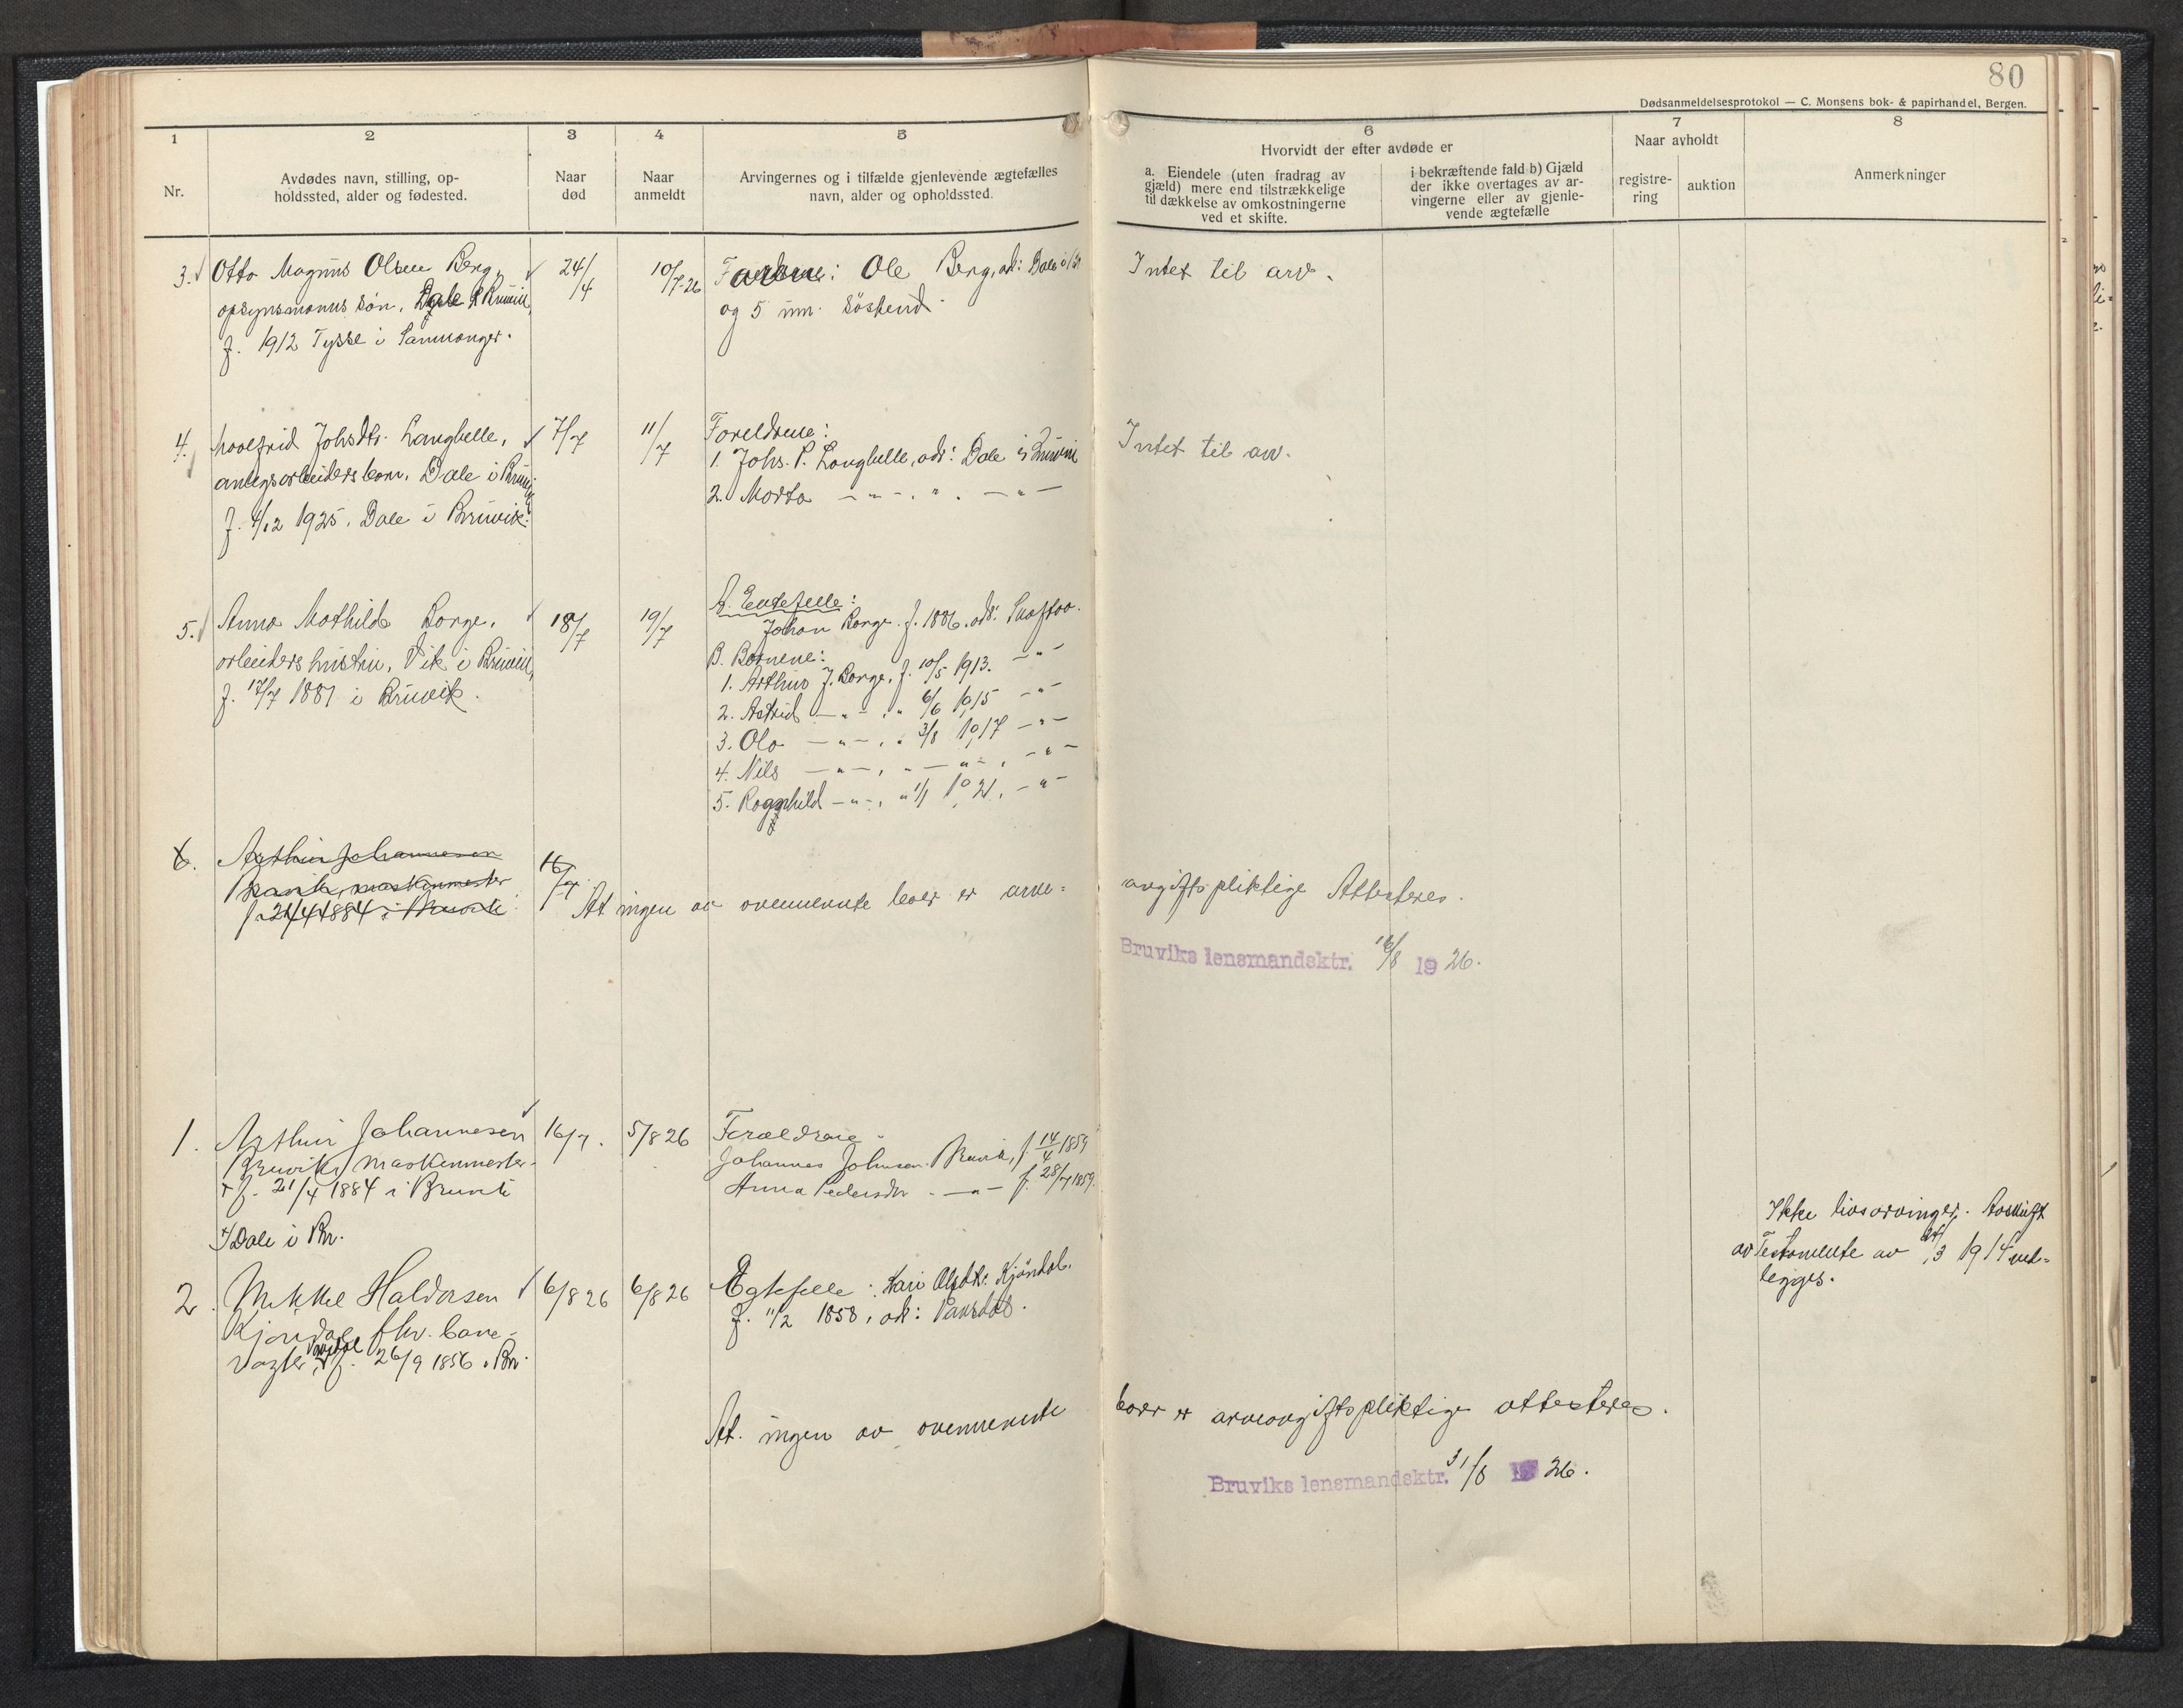 80
Dødsanmeldelsesprotokol — C. Monsens bok- & papirhandel, Bergen.
1 2 3 4 5 6 7 8
Nr.
Avdødes navn, stilling, op-
holdssted, alder og fødested.
Naar
død
Naar
anmeldt
Arvingernes og i tilfælde gjenlevende ægtefælles
navn, alder og opholdssted.
Hvorvidt der efter avdøde er
a. Eiendele (uten fradrag av
gjæld) mere end tilstrækkelige
til dækkelse av omkostningerne
ved et skifte.
i bekræftende fald b) Gjæld
der ikke overtages av ar-
vingerne eller av gjenle-
vende ægtefælle
Naar avholdt
registre-
ring
auktion
Anmerkninger
3. Otto Magnus Olsen Berg, 24/4 10/7-26 Ole Berg, adr: Dale i Intet til arv.
opsynsmanns søn, Dale i Bruvik, og 5 um. søskend.
f. 1912 Tysse i Samnanger.
4. Johsdtr. Langhelle, 7/7 11/7 Foreldrene: Intet til arv.
anlegsarbeiders barn, Dale i Bruvik 1. Johs. P. Langhelle, adr: Dale i Bruvik
f. 4/12 1925, Dale i Bruvik. 2. Marta — " — . " . — " —
5. Anna Mathilde Borge, 18/7 19/7 A. Ektefelle:
arbeiders hustru, Vik i Bruvik, Johan Borge. f. 1886. adr:
f. 17/7 1881 i Bruvik. B. Børnene:
1. Arthur J. Borge, f. 10/5 1913. — " —
2. Astrid — " — , " 6/6 1915 — " —
3. Ola — " — , " 3/8 1917 — " —
4. Nils — " — , " — " — , — " —
5. Ragnhild — " — , " 1/1 1921, — " —
6. Arthur Johannesen 16/7
Bruvik, maskinmester
f. 21/4 1884 i Bruvik
At ingen av ovennevnte boer er arve= avgiftspliktige Attesteres.
Bruviks lensmandsktr. /8 1926.
1. Arthur Johannesen 16/7. 5/8 26 Foreldrene
Bruvik, maskinmester Johannes Johnsen Bruvik, f. 14/4 1859
f. 21/4 1884 i Bruvik Anna Pedersdtr — " — f. 28/7 1859.
Dale i Br.
Ikke livsarvinger. Avskrift
av Testamente av /3 1914 ved=
legges.
2. Mikkel Haldorsen 6/8 26 6/8 26 Egtefelle: Kari Olsdtr. Kjøndal.
Kjøndal fhv. bane- f. 11/2 1858, adr: Vaksdal.
vagter, Vaksdal f. 26/9 1856 i Br.
At ingen av ovennevnte boer er arveavgiftspliktige attesteres.
Bruviks lensmandsktr. 31/8 1926.